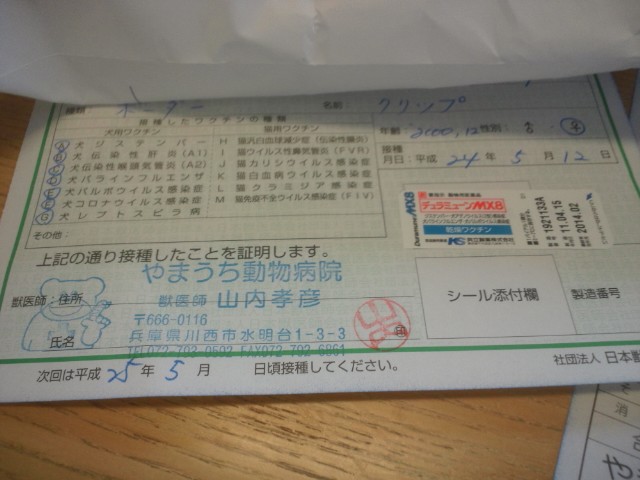 種類 ボーダー 名前 クリップ
接種したワクチンの種類
犬用ワクチン 猫用ワクチン
A 犬ジステンパー H 猫汎白血球減少症(伝染性腸炎)
B 犬伝染性肝炎(A1) I 猫ウイルス性鼻気管炎(FVR)
C 犬伝染性喉頭気管炎(A2) J 猫カリシウイルス感染症
D 犬パラインフルエンザ K 猫白血病ウイルス感染症
E 犬パルボウイルス感染症 L 猫クラミジア感染症
F 犬コロナウイルス感染症 M 猫免疫不全ウイルス感染症(FIV)
G 犬レプトスピラ病
その他:
年齢 2000,12 性別: ♂ ♀
接種
月日:平成 24年 5月 12日
Duramune MX8
デュラミューンMX8
乾燥ワクチン
KS 共立製薬株式会社
1921133A
11.04.15
2014.02
上記の通り接種したことを証明します。
やまうち動物病院
獣医師:住所
獣医師 山内孝彦
〒666-0116
兵庫県川西市水明台1-3-3
氏名
印
シール添付欄
製造番号
次回は平成 25年 5月 日頃接種してください。
社団法人 日本